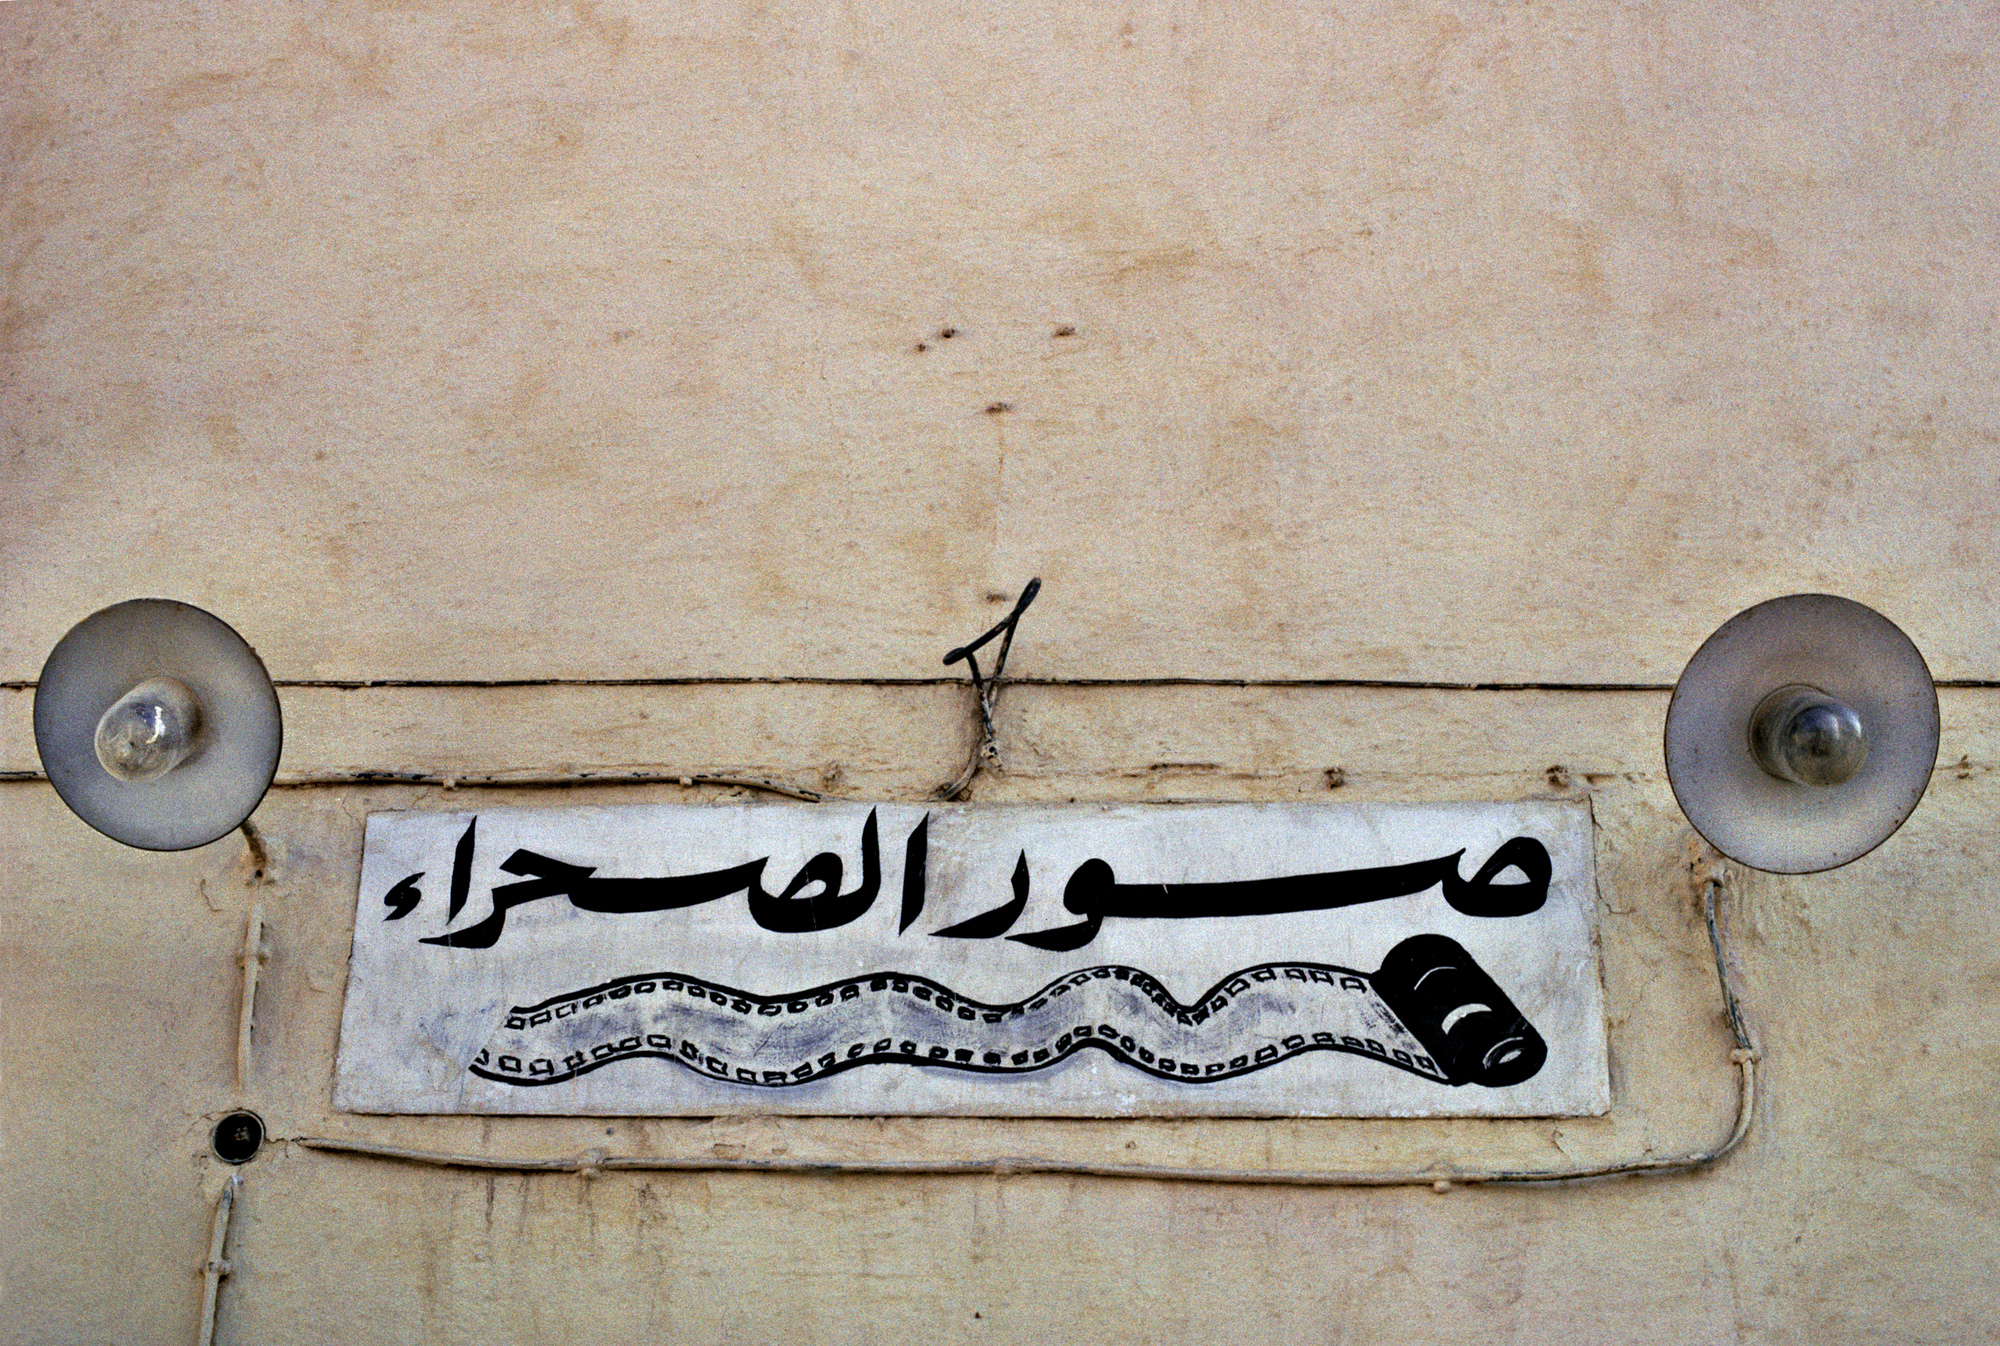 صور الصحراء